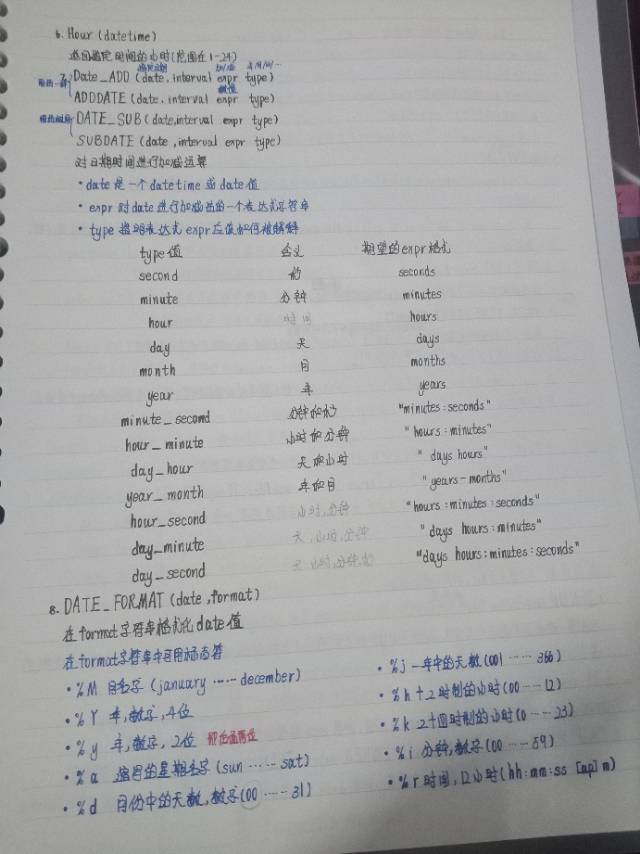 6. Hour (datetime)
返回指定时间的小时(范围在1-24)
7. Date_ADD (date, interval expr type)
ADDDATE (date, interval expr type)
DATE_SUB (date, interval expr type)
SUBDATE (date, interval expr type)
对日期时间进行加减运算
• date 是一个 datetime 或 date 值
• expr 对 date 进行加减法的一个表达式字符串
• type 指明表达式 expr 应该如何被解释
type 值 含义 期望的 expr 格式
second 秒 seconds
minute 分钟 minutes
hour 时间 hours
day 天 days
month 月 months
year 年 years
minute_second 分钟和秒 "minutes:seconds"
hour_minute 小时和分钟 "hours:minutes"
day_hour 天和小时 "days hours"
year_month 年和月 "years-months"
hour_second 小时,分钟 "hours:minutes:seconds"
day_minute 天,小时,分钟 "days hours:minutes"
day_second 天,小时,分钟,秒 "days hours:minutes:seconds"
8. DATE_FORMAT (date, format)
在 format 字符串格式化 date 值
在 format 字符串中可用标志符
• %M 月名字 (january ······ december)
• %Y 年,数字,4位
• %y 年,数字,2位 即后面两位
• %a 缩写的星期名字 (sun ······ sat)
• %d 月份中的天数,数字 (00 ······ 31)
• %j 一年中的天数 (001 ······ 366)
• %h 十2时制的小时 (00 ······ 12)
• %k 2十四时制的小时 (0 ······ 23)
• %i 分钟,数字 (00 ······ 59)
• %r 时间,12小时 (hh:mm:ss [ap]m)